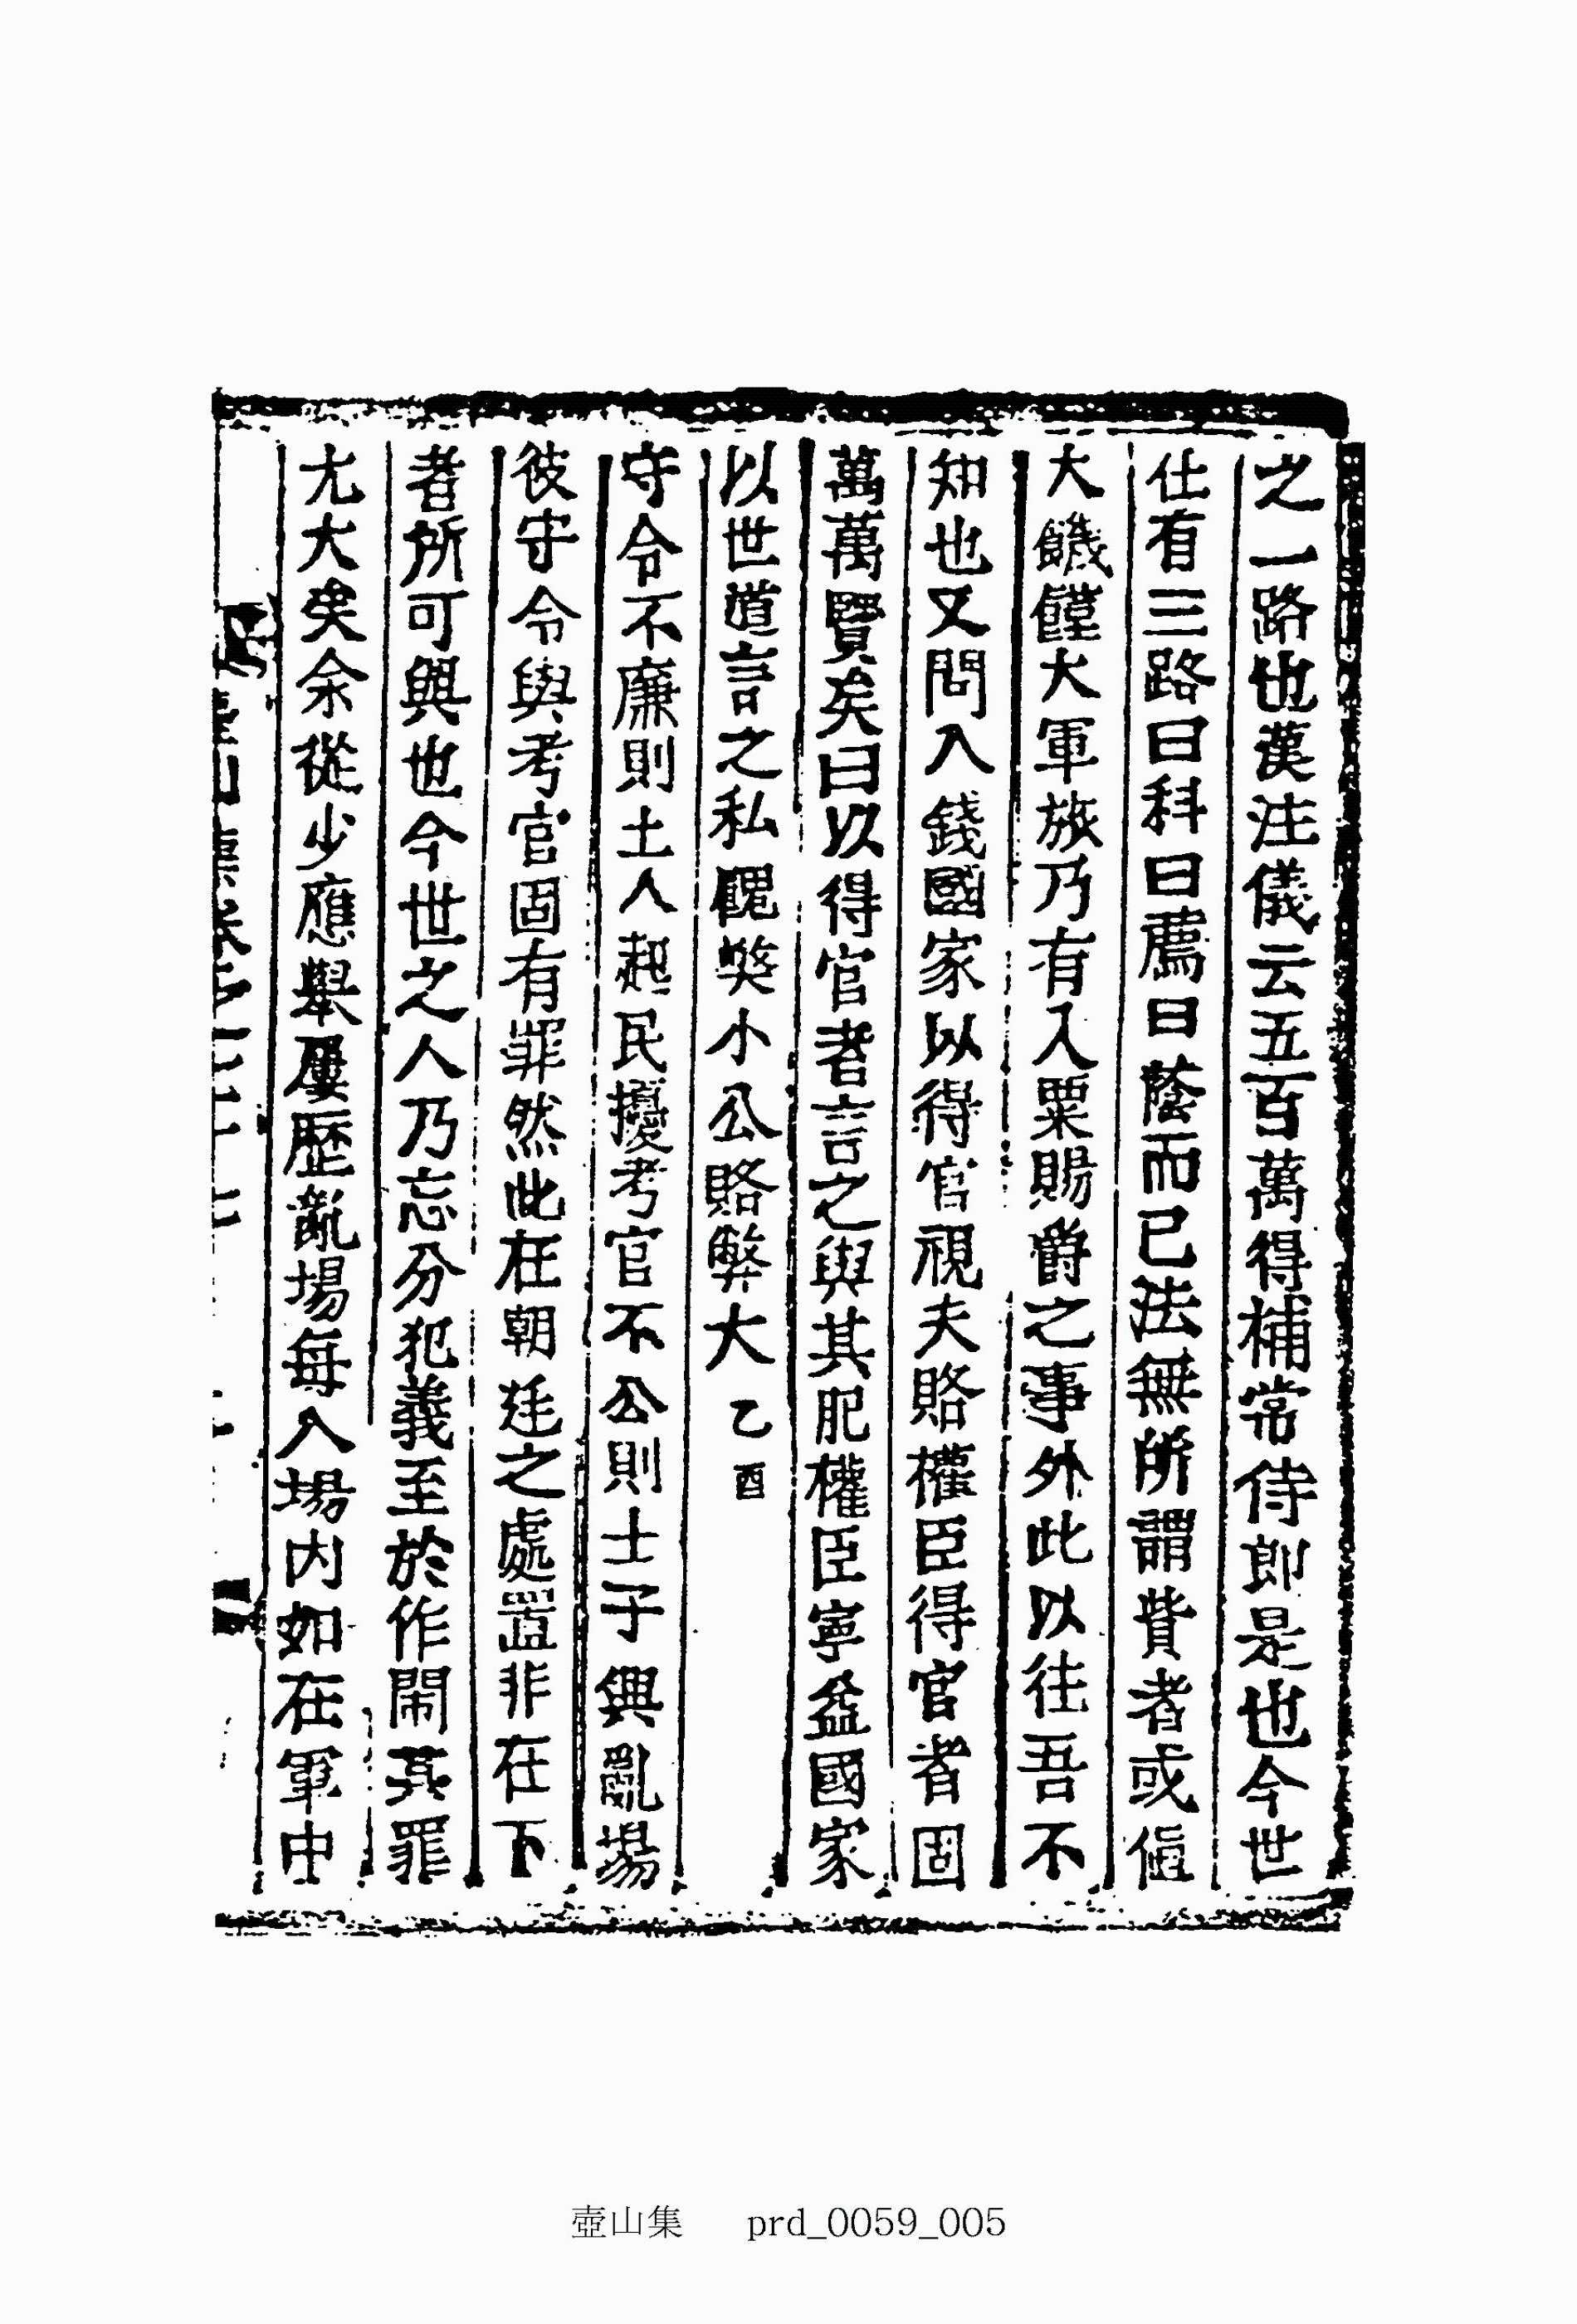 之一路也漢注儀云五百萬得補常侍郎是也今世
仕有三路曰科曰薦曰蔭而已法無所謂貲者或値
大饑饉大軍旅乃有入粟賜爵之事外此以往吾不
知也又問入錢國家以得官視夫賂權臣得官者固
萬萬賢矣曰以得官者言之與其肥權臣寧益國家
以世道言之私醜獘小公賂弊大 乙酉
守令不廉則土人起民擾考官不公則士子興亂場
彼守令與考官固有罪然此在朝廷之處置非在下
者所可與也今世之人乃忘分犯義至於作鬧其罪
尤大矣余從少應擧屢歷亂場每入場内如在軍中
壺山集 prd_0059_005